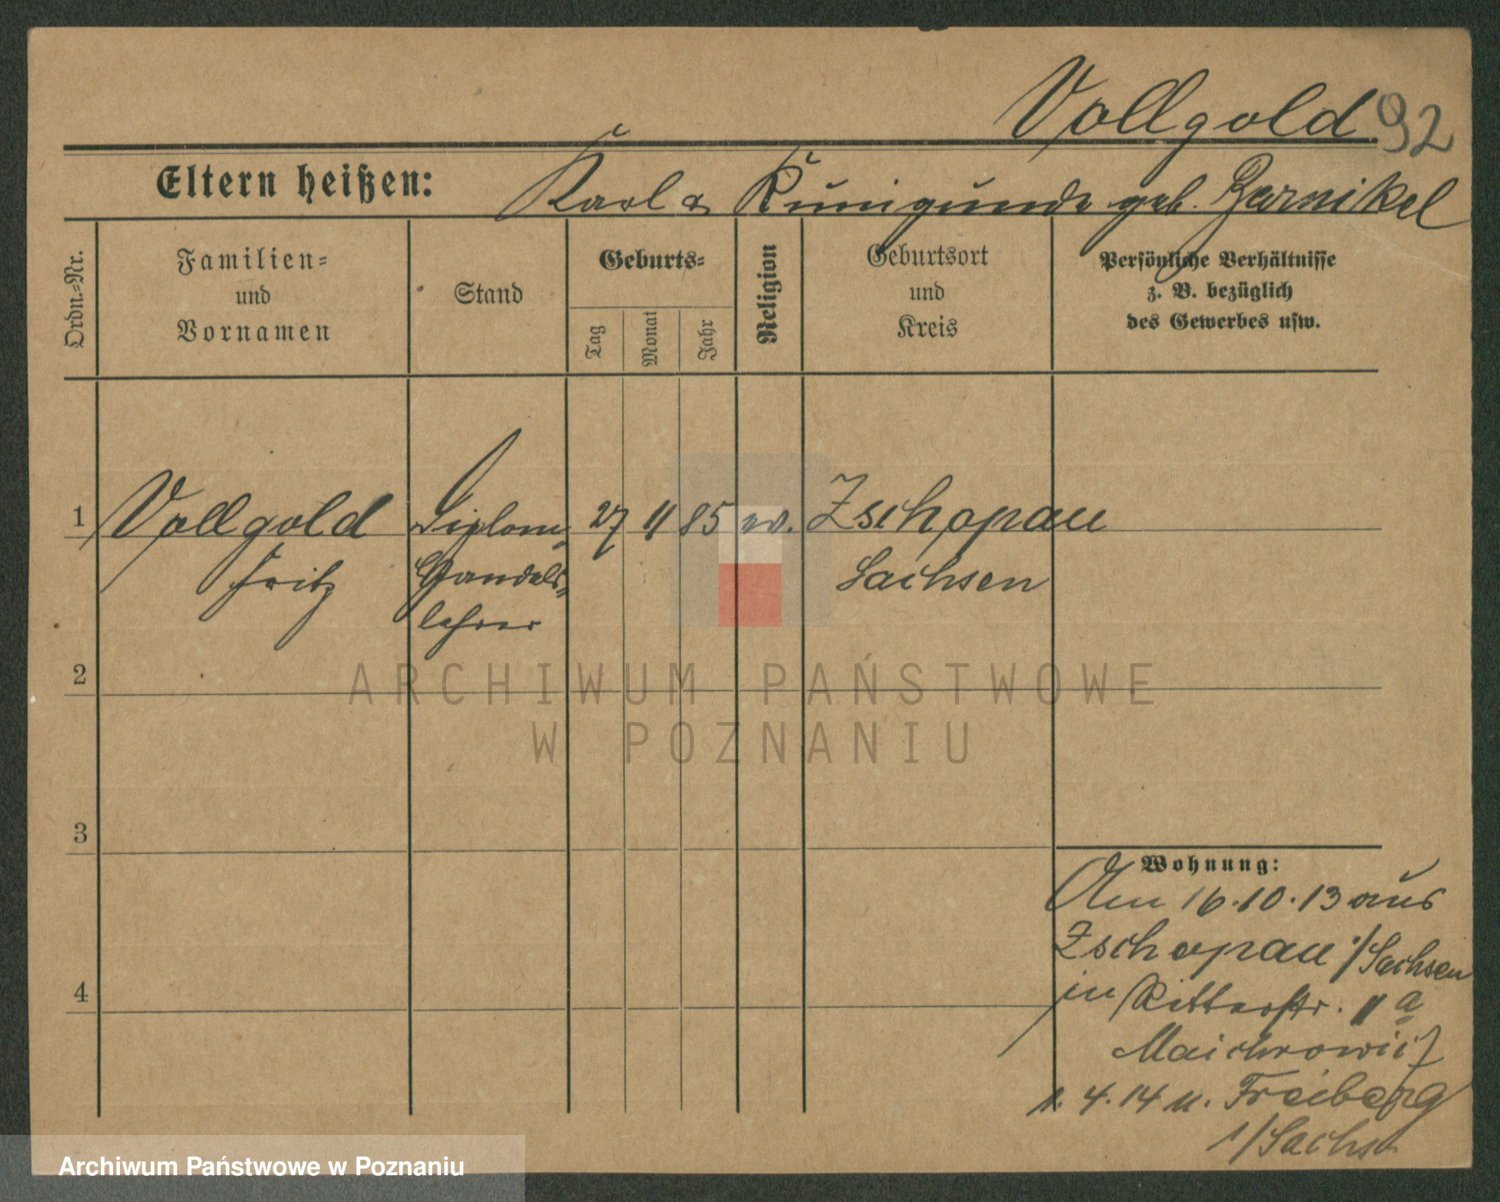 Vollgold 92
Eltern heißen: Karl & Kunigunde geb. Barnikel
Ordn.-Nr.
Familien-
und
Vornamen
Stand
Geburts-
Tag
Monat
Jahr
Religion
Geburtsort
und
Kreis
Persönliche Verhältnisse
z. B. bezüglich
des Gewerbes usw.
1 Vollgold Diplom- 27 11 85 ev. Zschopau
Fritz Handels- Sachsen
lehrer
2
ARCHIWUM PAŃSTWOWE
W POZNANIU
3
Wohnung:
Am 16.10.13 aus
Zschopau i/Sachsen
in Ritterstr. 11 a
4
1.4.14 n. Freiberg
i/Sachs
Archiwum Państwowe w Poznaniu